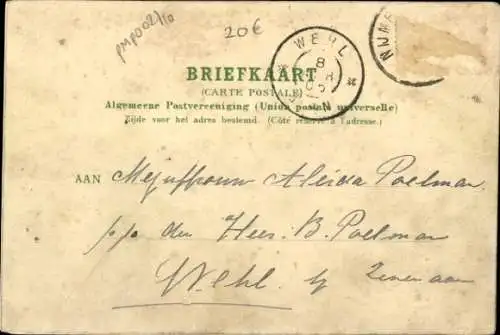 pmp002110
20€
WEHL
8
NIJM
BRIEFKAART
(CARTE POSTALE)
Algemeene Postvereeniging (Union postale universelle)
Zijde voor het adres bestemd. (Côté réservé à l'adresse.)
AAN Mejuffrouw Aleida Poelman
p/a den Heer. B. Poelman
Wehl by Zevenaar